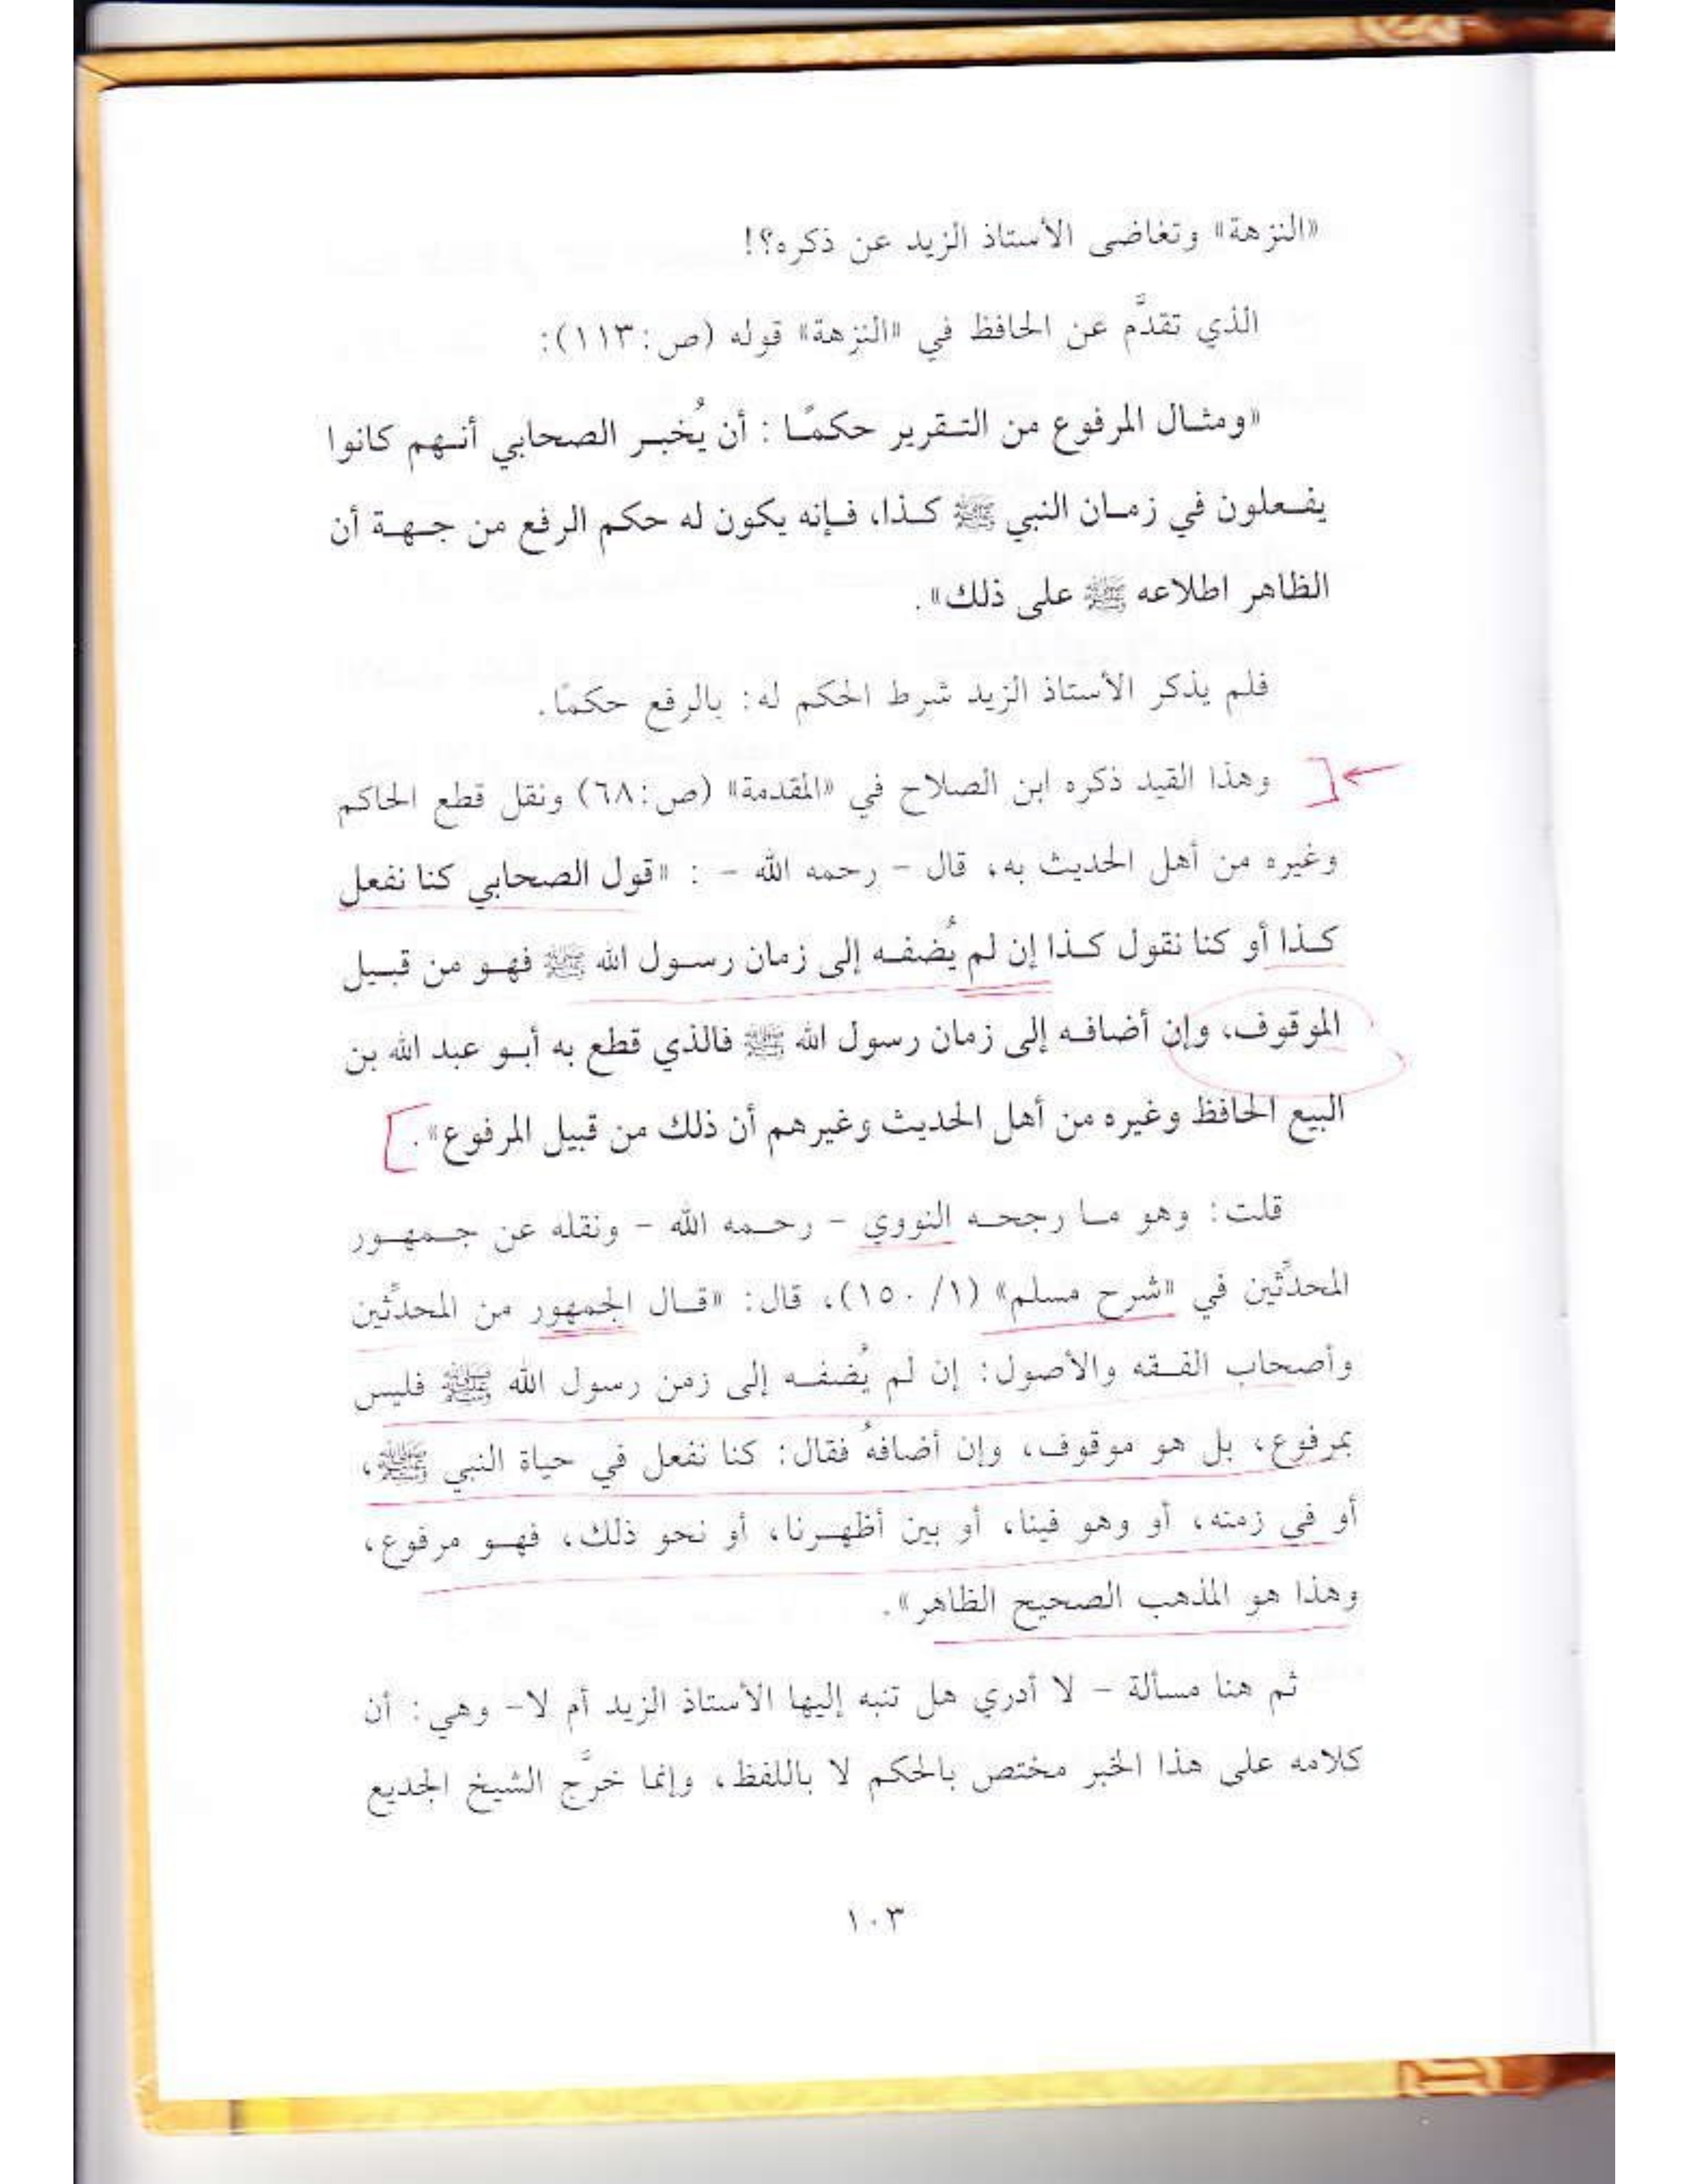 «النزهة» وتغاضى الأستاذ الزيد عن ذكره؟!
الذي تقدَّم عن الحافظ في «النزهة» قوله (ص:١١٣):
«ومثـال المرفوع من التـقرير حكمًـا : أن يُخبـر الصحابي أنـهم كانوا
يفـعلون في زمـان النبي ﷺ كـذا، فـإنه يكون له حكم الرفع من جـهـة أن
الظاهر اطلاعه ﷺ على ذلك» .
فلم يذكر الأستاذ الزيد شرط الحكم له: بالرفع حكمًا.
وهذا القيد ذكره ابن الصلاح في «المقدمة» (ص:٦٨) ونقل قطع الحاكم
وغيره من أهل الحديث به، قال – رحمه الله – : «قول الصحابي كنا نفعل
كـذا أو كنا نقول كـذا إن لم يُضفـه إلى زمان رسـول الله ﷺ فهـو من قبـيل
الموقوف، وإن أضافـه إلى زمان رسول الله ﷺ فالذي قطع به أبـو عبد الله بن
البيع الحافظ وغيره من أهل الحديث وغيرهم أن ذلك من قبيل المرفوع» .
قلت: وهو مـا رجحـه النووي – رحـمه الله – ونقله عن جـمهـور
المحدِّثين في «شرح مسلم» (١/ ١٥٠)، قال: «قـال الجمهور من المحدِّثين
وأصحاب الفـقه والأصول: إن لم يُضفـه إلى زمن رسول الله ﷺ فليس
بمرفوع، بل هو موقوف، وإن أضافهُ فقال: كنا نفعل في حياة النبي ﷺ،
أو في زمنه، أو وهو فينا، أو بين أظهـرنا، أو نحو ذلك، فهـو مرفوع،
وهذا هو المذهب الصحيح الظاهر» .
ثم هنا مسألة – لا أدري هل تنبه إليها الأستاذ الزيد أم لا– وهي: أن
كلامه على هذا الخبر مختص بالحكم لا باللفظ، وإنما خرَّج الشيخ الجديع
١٠٣